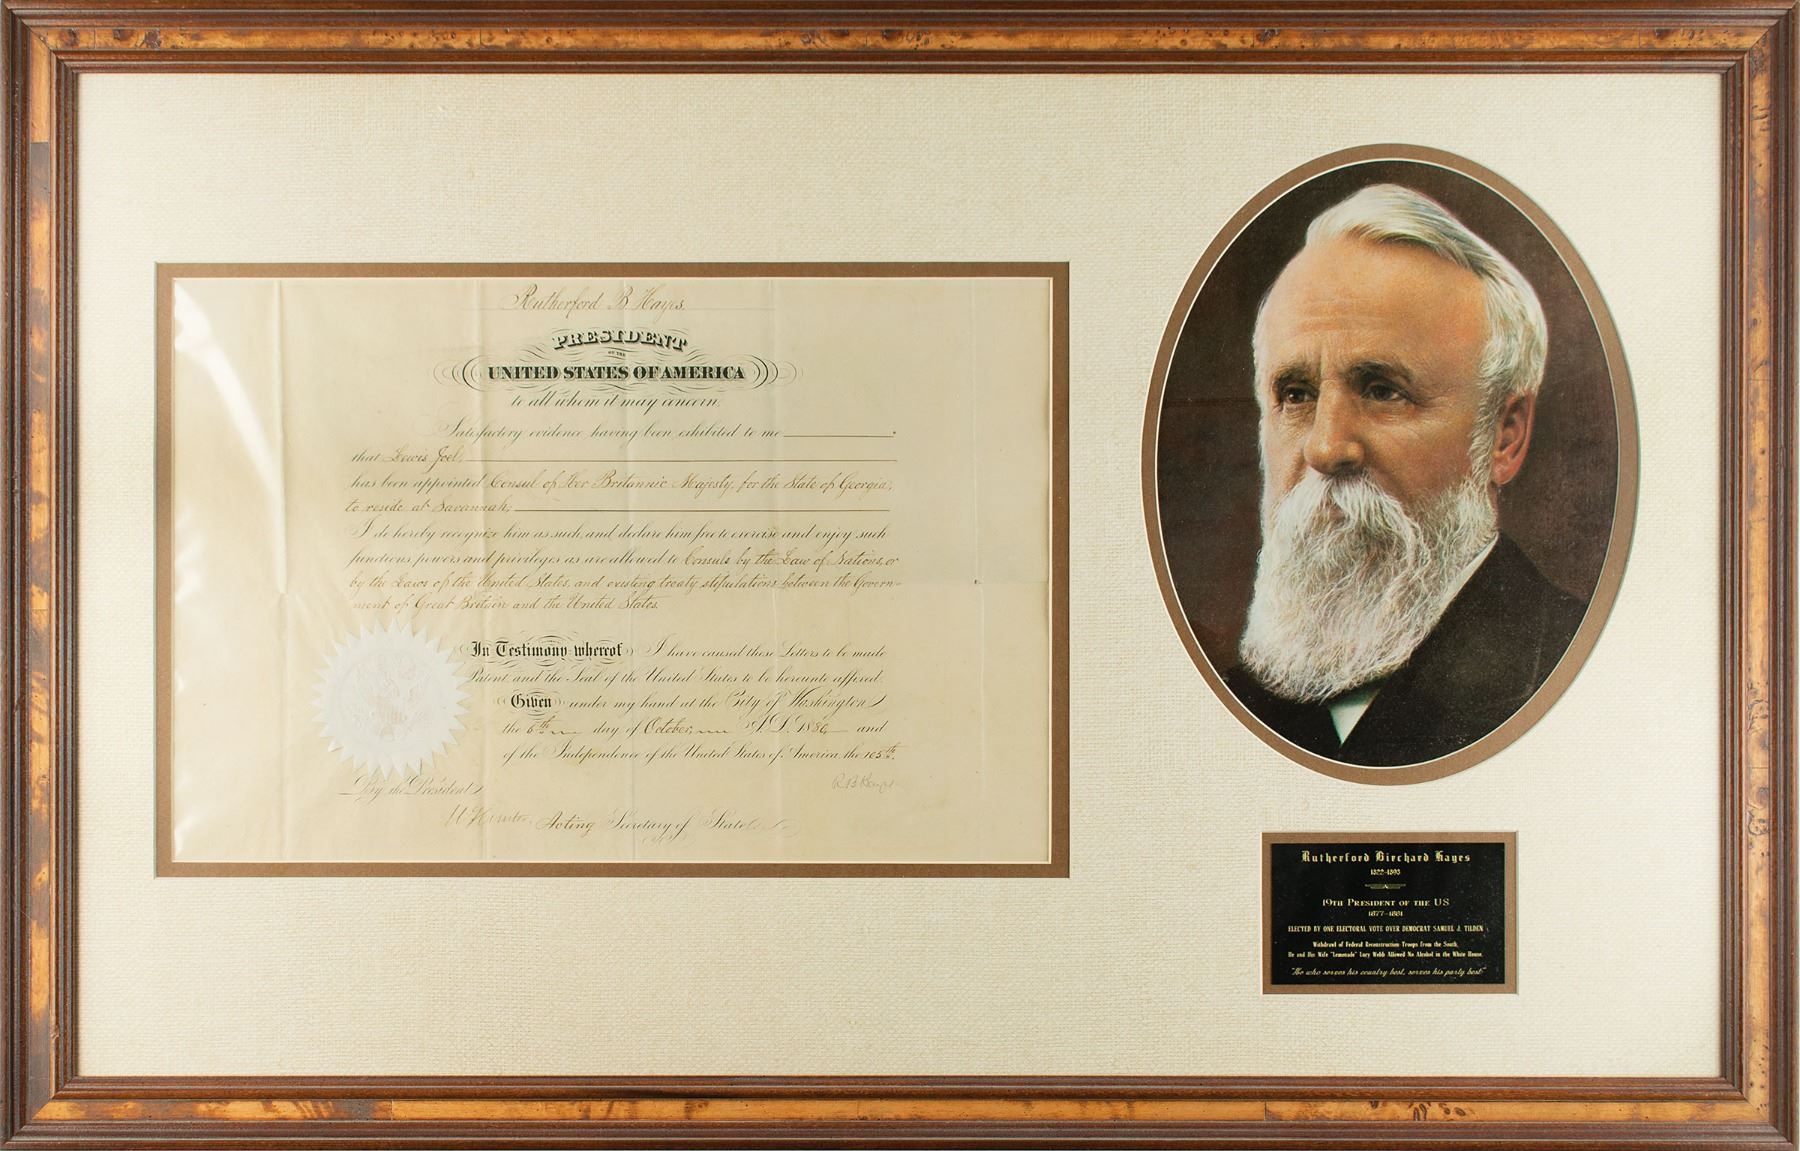 Rutherford B Hayes,
PRESIDENT
OF THE
UNITED STATES OF AMERICA
to all whom it may concern,
Satisfactory evidence having been exhibited to me
that Lewis Joel,
has been appointed Consul of Her Britannic Majesty, for the State of Georgia,
to reside at Savannah,
I do hereby recognize him as such, and declare him free to exercise and enjoy such
functions powers and privileges as are allowed to Consuls by the Law of Nations, or
by the Laws of the United States, and existing treaty stipulations between the Govern-
ment of Great Britain and the United States.
In Testimony whereof I have caused these Letters to be made
Patent, and the Seal of the United States to be hereunto affixed.
Given under my hand at the City of Washington
the 6th day of October, A.D. 1880, and
of the Independence of the United States of America, the 105th.
By the President
R B Hayes
Acting Secretary of State
Rutherford Birchard Hayes
1822-1893
19TH PRESIDENT OF THE US
1877-1881
ELECTED BY ONE ELECTORAL VOTE OVER DEMOCRAT SAMUEL J. TILDEN
Withdrawl of Federal Reconstruction Troops from the South.
He and His Wife "Lemonade" Lucy Webb Allowed No Alcohol in the White House.
"He who serves his country best, serves his party best"